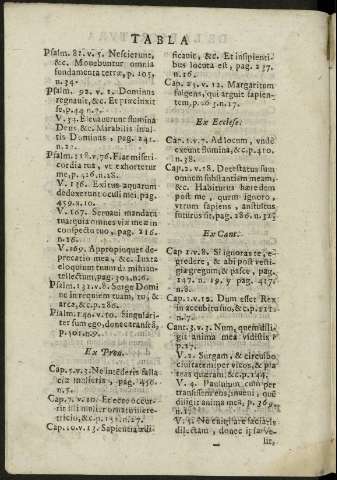 TABLA
Psalm. 81. v. 5. Nescierunt,
&c. Mouebuntur omnia
fundamenta terræ, p. 105,
n. 34.
Psalm. 92. v. 1. Dominus
regnauit, &c. Et præcinxit
se, p.
V. 3. Eleuauerunt flumina
Deus &c. Mirabilis in al-
tis Dominus, pag. 241.
n.
Psalm. 118. v. 76. Fiat miseri-
cordia tua, vt exhortetur
me, p. 426. n. 28.
V. 136. Exitus aquarum
deduxerunt oculi mei, pag.
459. n. 10.
V. 167. Seruaui mandata
tua quia omnes viæ meæ in
conspectu tuo, pag. 116.
n. 16.
V. 169. Appropinquet de-
precatio mea, &c. Iuxta
eloquium tuum da mihi in-
tellectum, pag. 301. n. 6.
Psalm. 131. v. 8. Surge Domi
ne in requiem tuam, tu, &
arca, &c. p. 286.
Psalm. 140. v. 10. Singulari-
ter sum ego, donec transeã,
p. 301. n. 9.
Ex Prou.
Cap. 5. v. 3. Ne intederis falla
ciæ mulieris, pag. 450.
n. 5.
Cap. 7. v. 10. Et ecce occur-
rit illi mulier ornatu mere-
tricio, &c. p.
Cap. 10. v. 13. Sapientia ædi-
ficauit, &c. Et insipienti-
bus locuta est, pag. 237.
n. 16.
Cap. 25. v. 12. Margaritum
fulgens, qui arguit sapien-
tem, p. 263. n. 17.
Ex Eccles.
Cap. 1. v. 7. Ad locum, vnde
exeunt flumina, &c. p. 410.
n. 38.
Cap. 2. v. 18. Detestatus sum
omnem substantiam meam,
&c. Habiturus hæredem
post me, quem ignoro,
vtrum sapiens, an stultus
futurus sit, pag. 286. n.
Ex Cant.
Cap 1. v. 8. Si ignoras te, e-
gredere, & abi post vesti-
gia gregum, & pasce, pag.
147. n. 19. y pag. 417.
n. 8.
Cap. 1. v. 12. Dum esset Rex
in accubitu suo, &c. p.
n. 7.
Cant. 3. v. 3. Num, quem dili-
git anima mea vidistis?
p. 17.
V. 2. Surgam, & circuibo
ciuitatem per vicos, & pla
teas quæram, &c. p. 144.
V. 4. Paululum cum per
transissem eos, inueni, quẽ
diligit anima mea, p. 369.
n. 17.
V. 5. Ne euigilare faciatis
dilectam, donec ipsa ve-
lit,